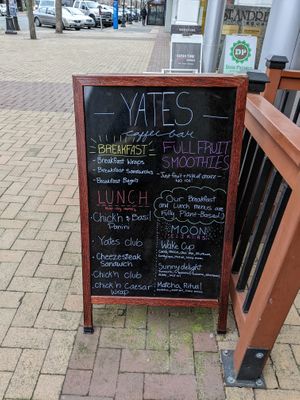 YATES
coffee bar
BREAKFAST
- Breakfast Wraps
- Breakfast Sandwiches
- Breakfast Bagels
LUNCH
- Chick'n & Basil
Panini
- Yates club
- Cheezesteak
Sandwich
- Chick'n club
- Chick'n Caesar
wrap
FULL FRUIT
SMOOTHIES
- Just fruit + milk of choice
NO ICE!
Our Breakfast
and Lunch menus are
Fully Plant-Based!
MOON
Wake Cup
Sunny delight
Matcha Ritual